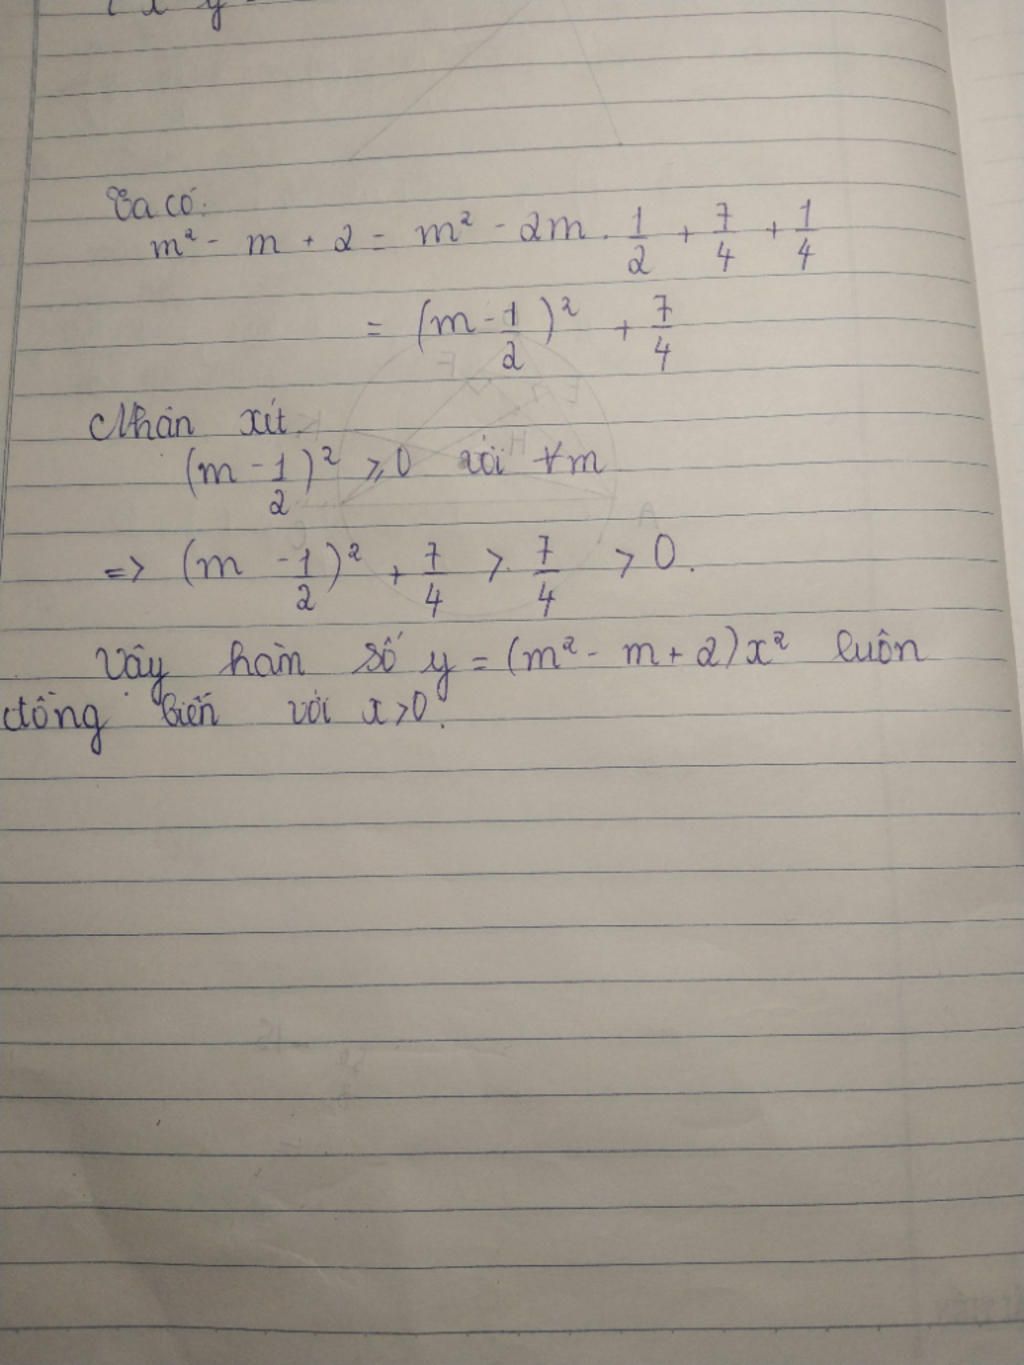 Ta có:
m² - m + 2 = m² - 2m . 1/2 + 7/4 + 1/4
= (m - 1/2)² + 7/4
Nhận xét
(m - 1/2)² ≥ 0 với ∀m
=> (m - 1/2)² + 7/4 > 7/4 > 0.
Vậy hàm số y = (m² - m + 2)x² luôn
đồng biến với x > 0.